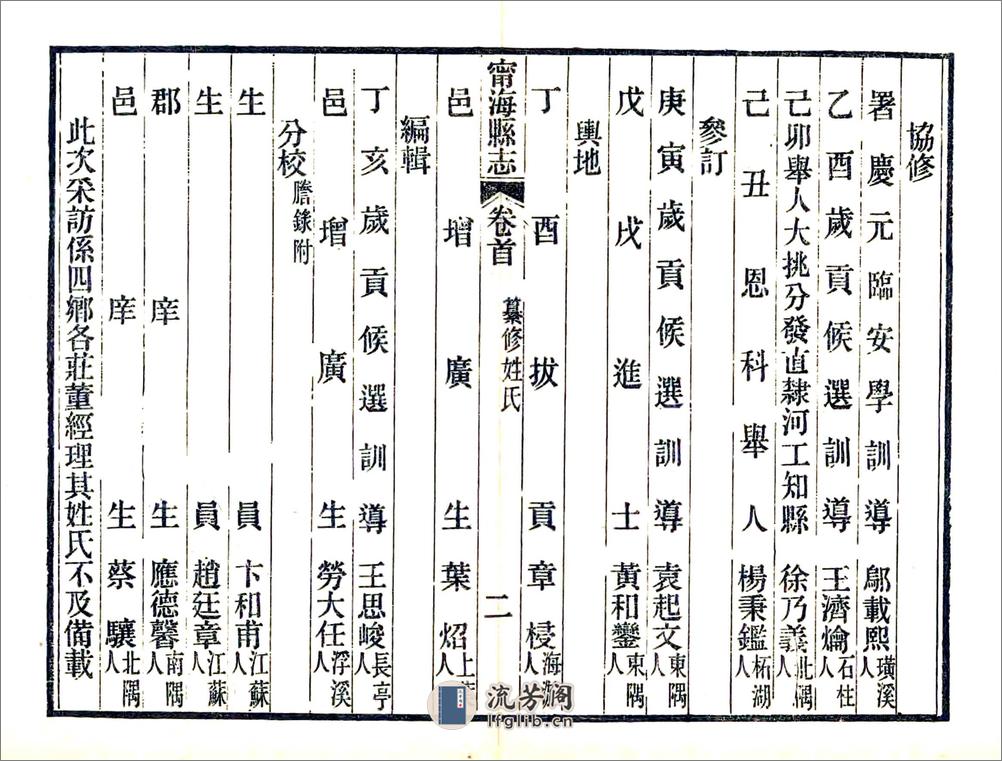 協修
署慶元臨安學訓導鄔載熙璜溪人
乙酉歲貢候選訓導王濟爚石柱人
己卯舉人大挑分發直隸河工知縣徐乃義北隅人
己丑恩科舉人楊秉鑑柘湖人
參訂
庚寅歲貢候選訓導袁起文東隅人
戊戌進士黃和鑾東隅人
輿地
丁酉拔貢章梫海人
甯海縣志 卷首 纂修姓氏 二
邑增廣生葉炤上人
編輯
丁亥歲貢候選訓導王思峻長亭人
邑增廣生勞大任浮溪人
分校謄錄附
生員卞和甫江蘇人
生員趙廷章江蘇人
郡庠生應德馨南隅人
邑庠生蔡驤北隅人
此次采訪係四鄉各莊董經理其姓氏不及備載
流芳閣
lfglib.cn